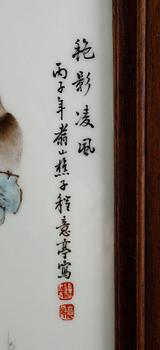 艳影凌風
丙子年翥山樵子程意亭寫